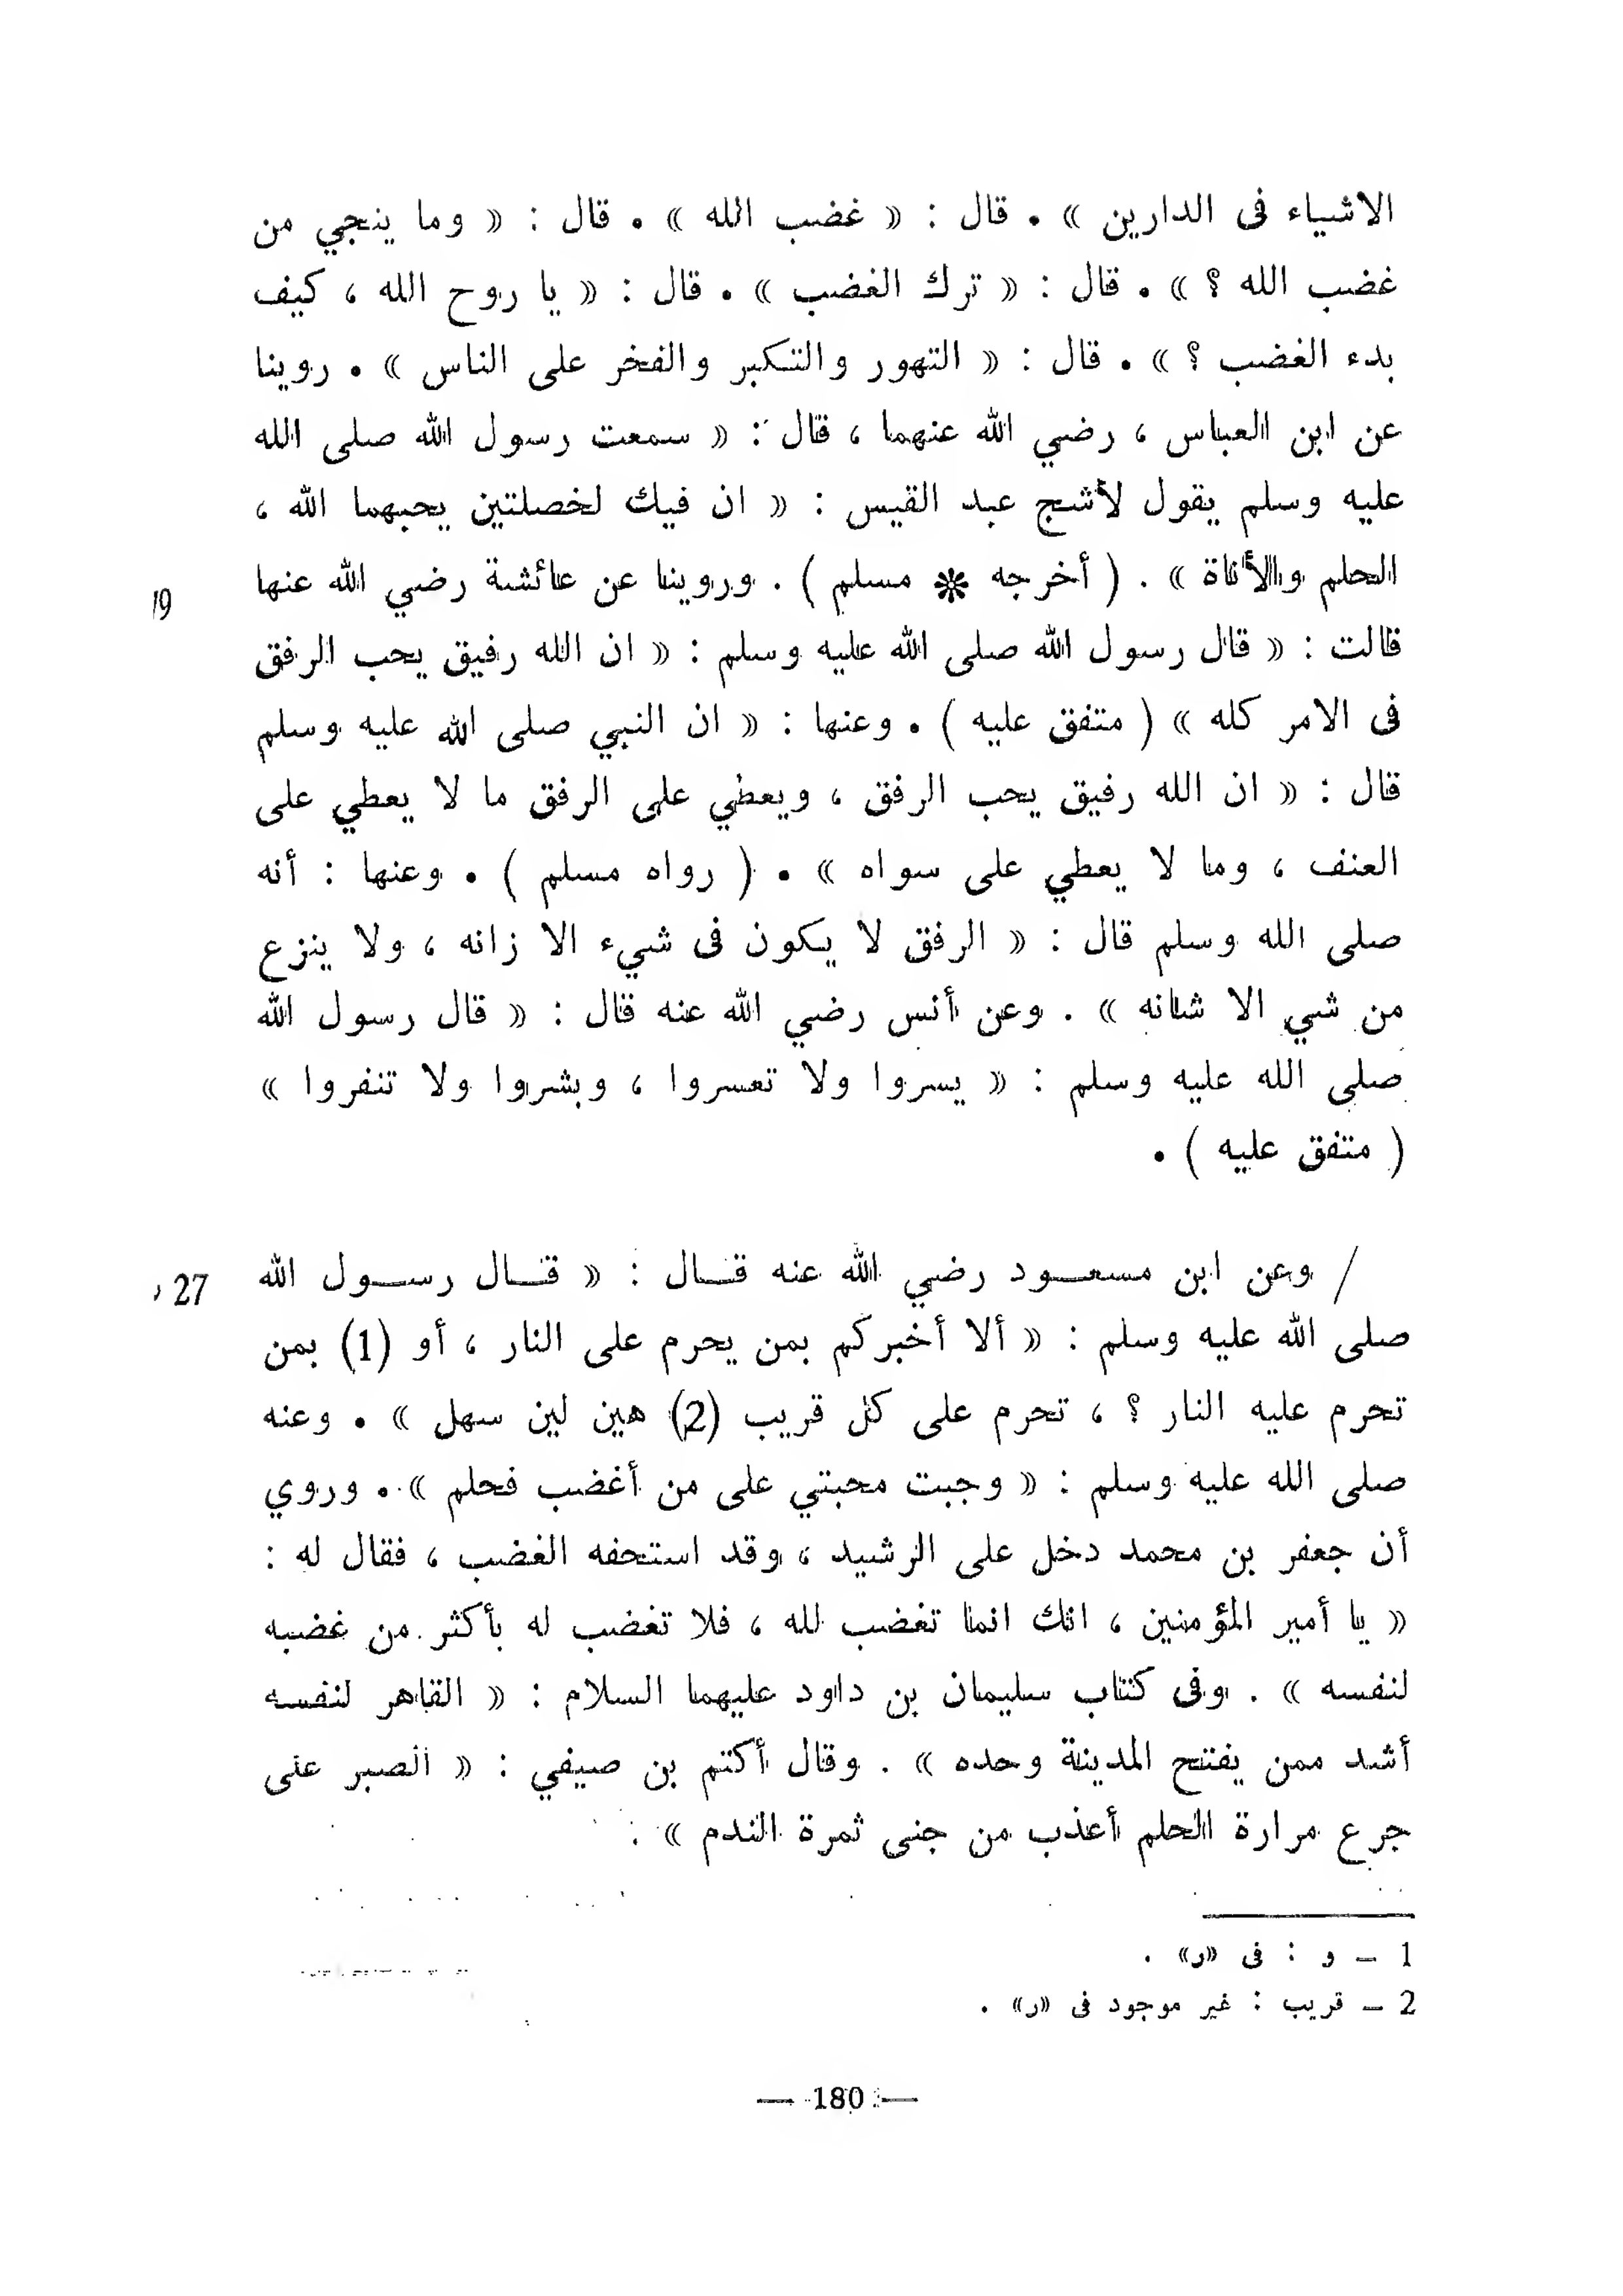 الاشياء فى الدارين » . قال : « غضب الله » . قال : « وما ينجي من
غضب الله ؟ » . قال : « ترك الغضب » . قال : « يا روح الله ، كيف
بدء الغضب ؟ » . قال : « التهور والتكبر والفخر على الناس » . روينا
عن ابن العباس ، رضي الله عنهما ، قال : « سمعت رسول الله صلى الله
عليه وسلم يقول لأشج عبد القيس : « ان فيك لخصلتين يحبهما الله ،
الحلم والأناة » . ( أخرجه * مسلم ) . وروينا عن عائشة رضي الله عنها
19
قالت : « قال رسول الله صلى الله عليه وسلم : « ان الله رفيق يحب الرفق
فى الامر كله » ( متفق عليه ) . وعنها : « ان النبي صلى الله عليه وسلم
قال : « ان الله رفيق يحب الرفق ، ويعطي على الرفق ما لا يعطي على
العنف ، وما لا يعطي على سواه » . ( رواه مسلم ) . وعنها : أنه
صلى الله وسلم قال : « الرفق لا يكون فى شيء الا زانه ، ولا ينزع
من شي الا شانه » . وعن أنس رضي الله عنه قال : « قال رسول الله
صلى الله عليه وسلم : « يسروا ولا تعسروا ، وبشروا ولا تنفروا »
( متفق عليه ) .
/ وعن ابن مسعود رضي الله عنه قال : « قال رسول الله
27
صلى الله عليه وسلم : « ألا أخبركم بمن يحرم على النار ، أو (1) بمن
تحرم عليه النار ؟ ، تحرم على كل قريب (2) هين لين سهل » . وعنه
صلى الله عليه وسلم : « وجبت محبتي على من أغضب فحلم » . وروي
أن جعفر بن محمد دخل على الرشيد ، وقد استحفه الغضب ، فقال له :
« يا أمير المؤمنين ، انك انما تغضب لله ، فلا تغضب له بأكثر من غضبه
لنفسه » . وفى كتاب سليمان بن داود عليهما السلام : « القاهر لنفسه
أشد ممن يفتح المدينة وحده » . وقال أكتم بن صيفي : « الصبر على
جرع مرارة الحلم أعذب من جنى ثمرة الندم » .
1 – و : فى «ر» .
2 – قريب : غير موجود فى «ر» .
— 180 —